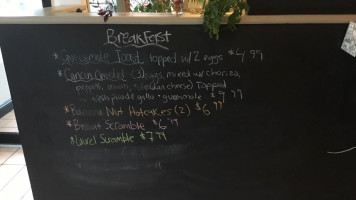 Breakfast
* Guacamole Toast topped w/ 2 eggs $4.99
* (3) eggs, mixed w/ chorizo,
peppers, onion, (cheese) Topped
w/ fresh pico de gallo + guacamole $9.99
* Banana Nut Hotcakes (2) $6.99
* Biscuit Scramble $6.99
* Laurel Scramble $7.99